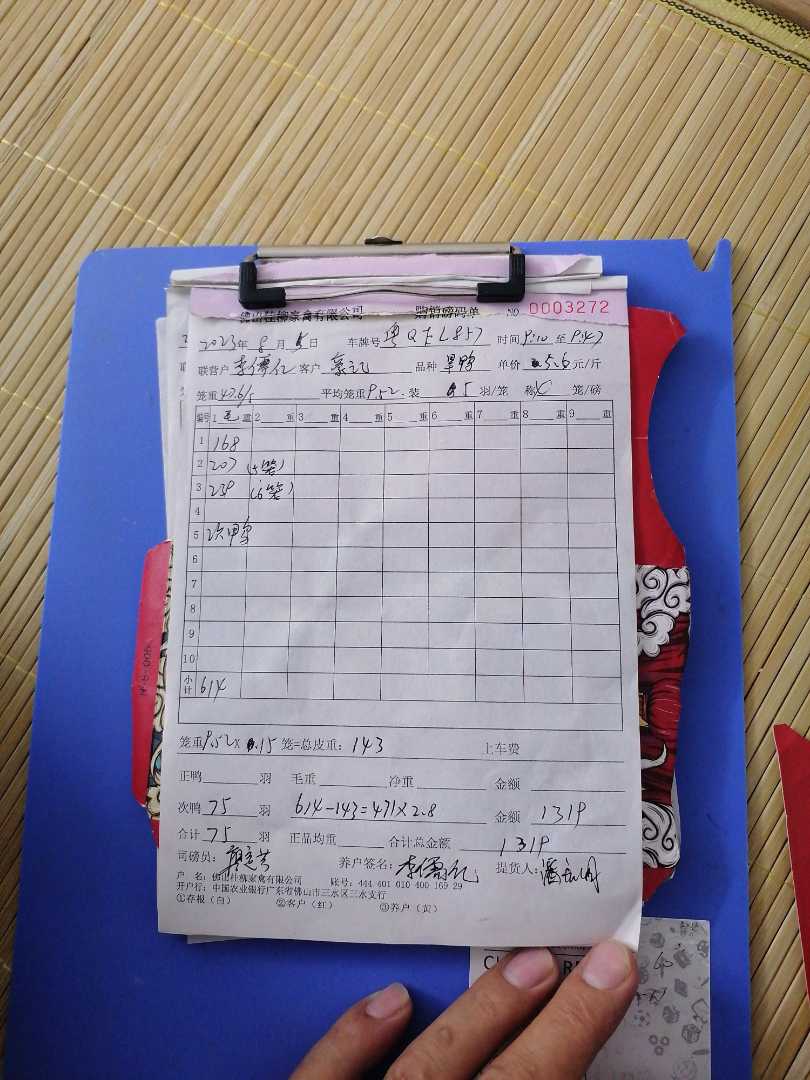 佛山桂柳家禽有限公司 购销磅码单 NO 0003272
2023年8月5日 车牌号 粤Q 857 时间 9:10 至 9:47
联营户 李 客户 品种 单价 5.6 元/斤
笼重 47.6/5 平均笼重 9.52 装 5 羽/笼 称 笼/磅
编号 1 毛 重 2 重 3 重 4 重 5 重 6 重 7 重 8 重 9 重
1 168
2 207 (5笼)
3 239 (6笼)
4
5 次鸭
6
7
8
9
10
小计 614
笼重 9.52 × 15 笼=总皮重: 143 上车费
正鸭 羽 毛重 净重 金额
次鸭 75 羽 614-143=471×2.8 金额 1319
合计 75 羽 正品均重 合计总金额 1319
司磅员: 养户签名: 李 提货人: 潘
户 名: 佛山桂柳家禽有限公司 账号: 444 401 010 400 169 29
开户行: 中国农业银行广东省佛山市三水区三水支行
①存根(白) ②客户(红) ③养户(黄)